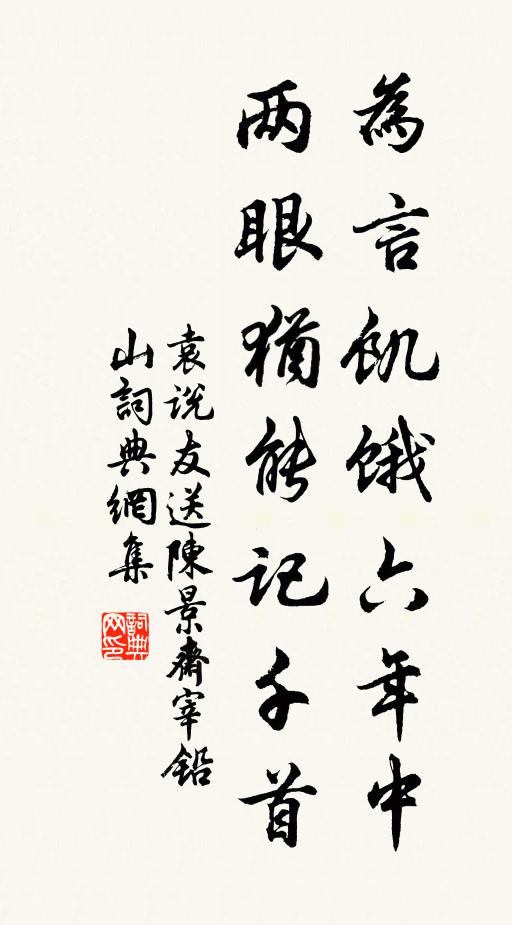 為言飢餓六年中
两眼猶能記千首
袁说友送陳景齋宰鉛
山詞典網集
詞典网印